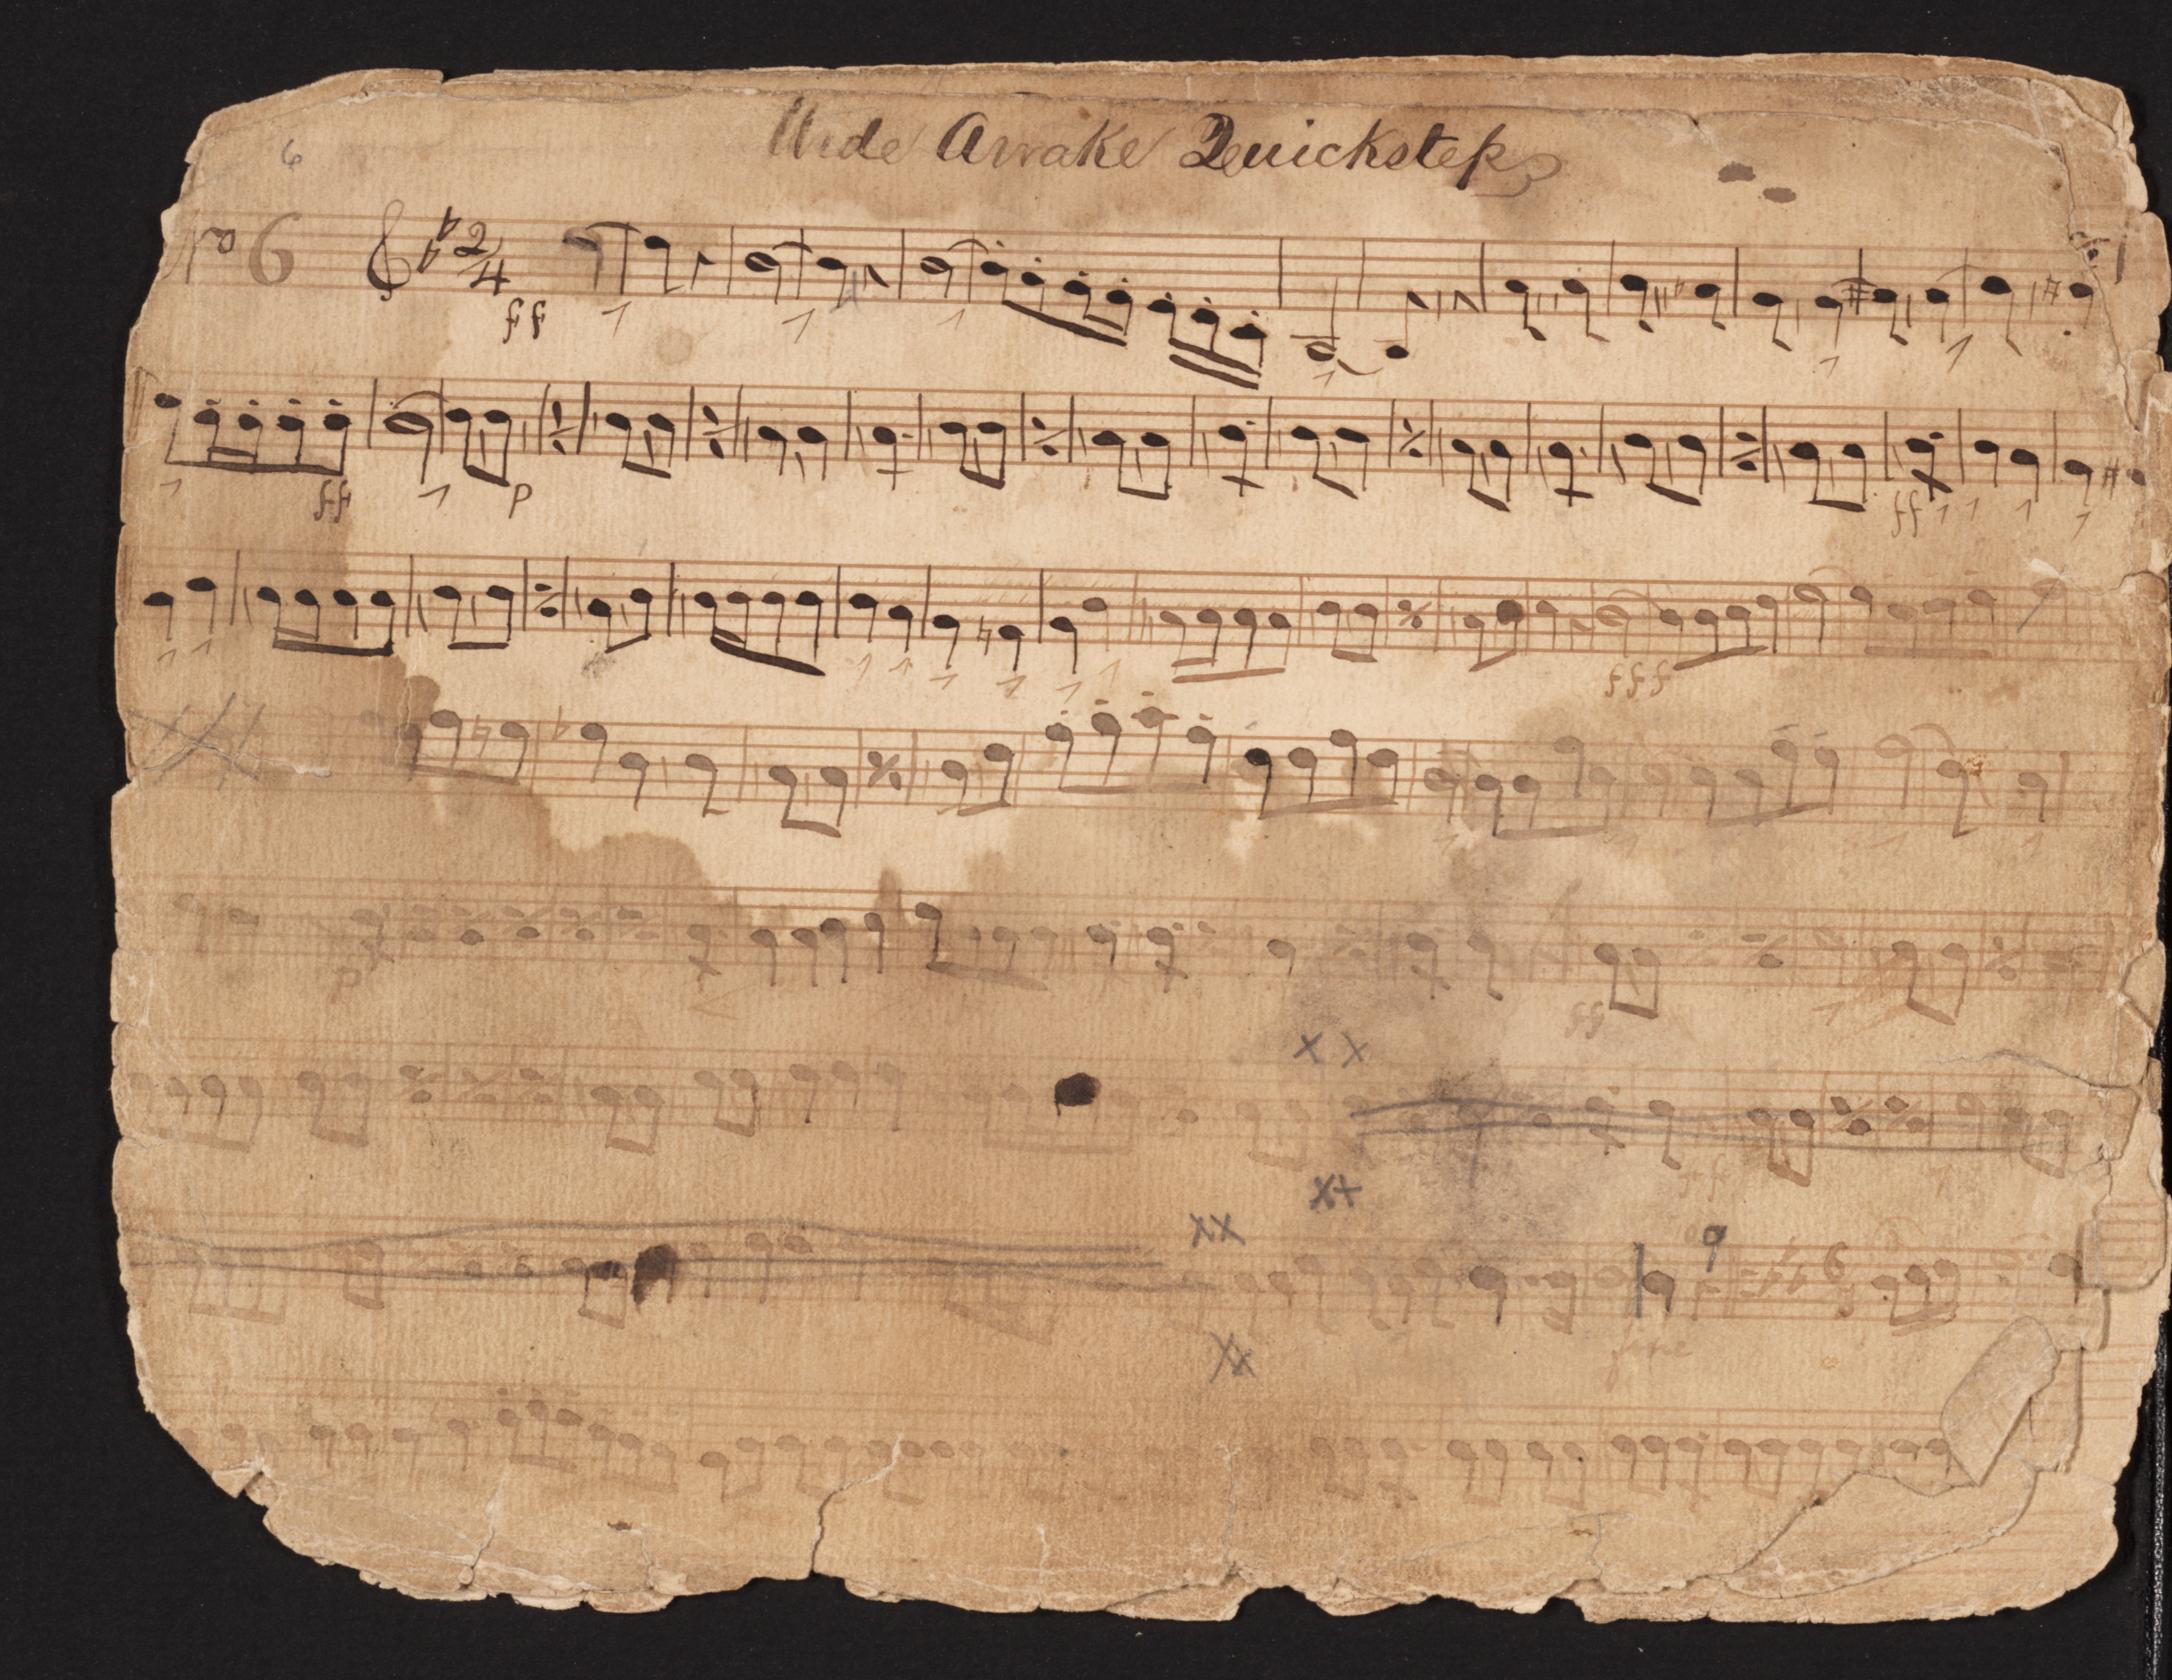 6
Wide Awake Quickstep
No 6
2/4
ff
ff p ff
fff
p ff
x x
ff
x+
xx
9
6
fine
xx